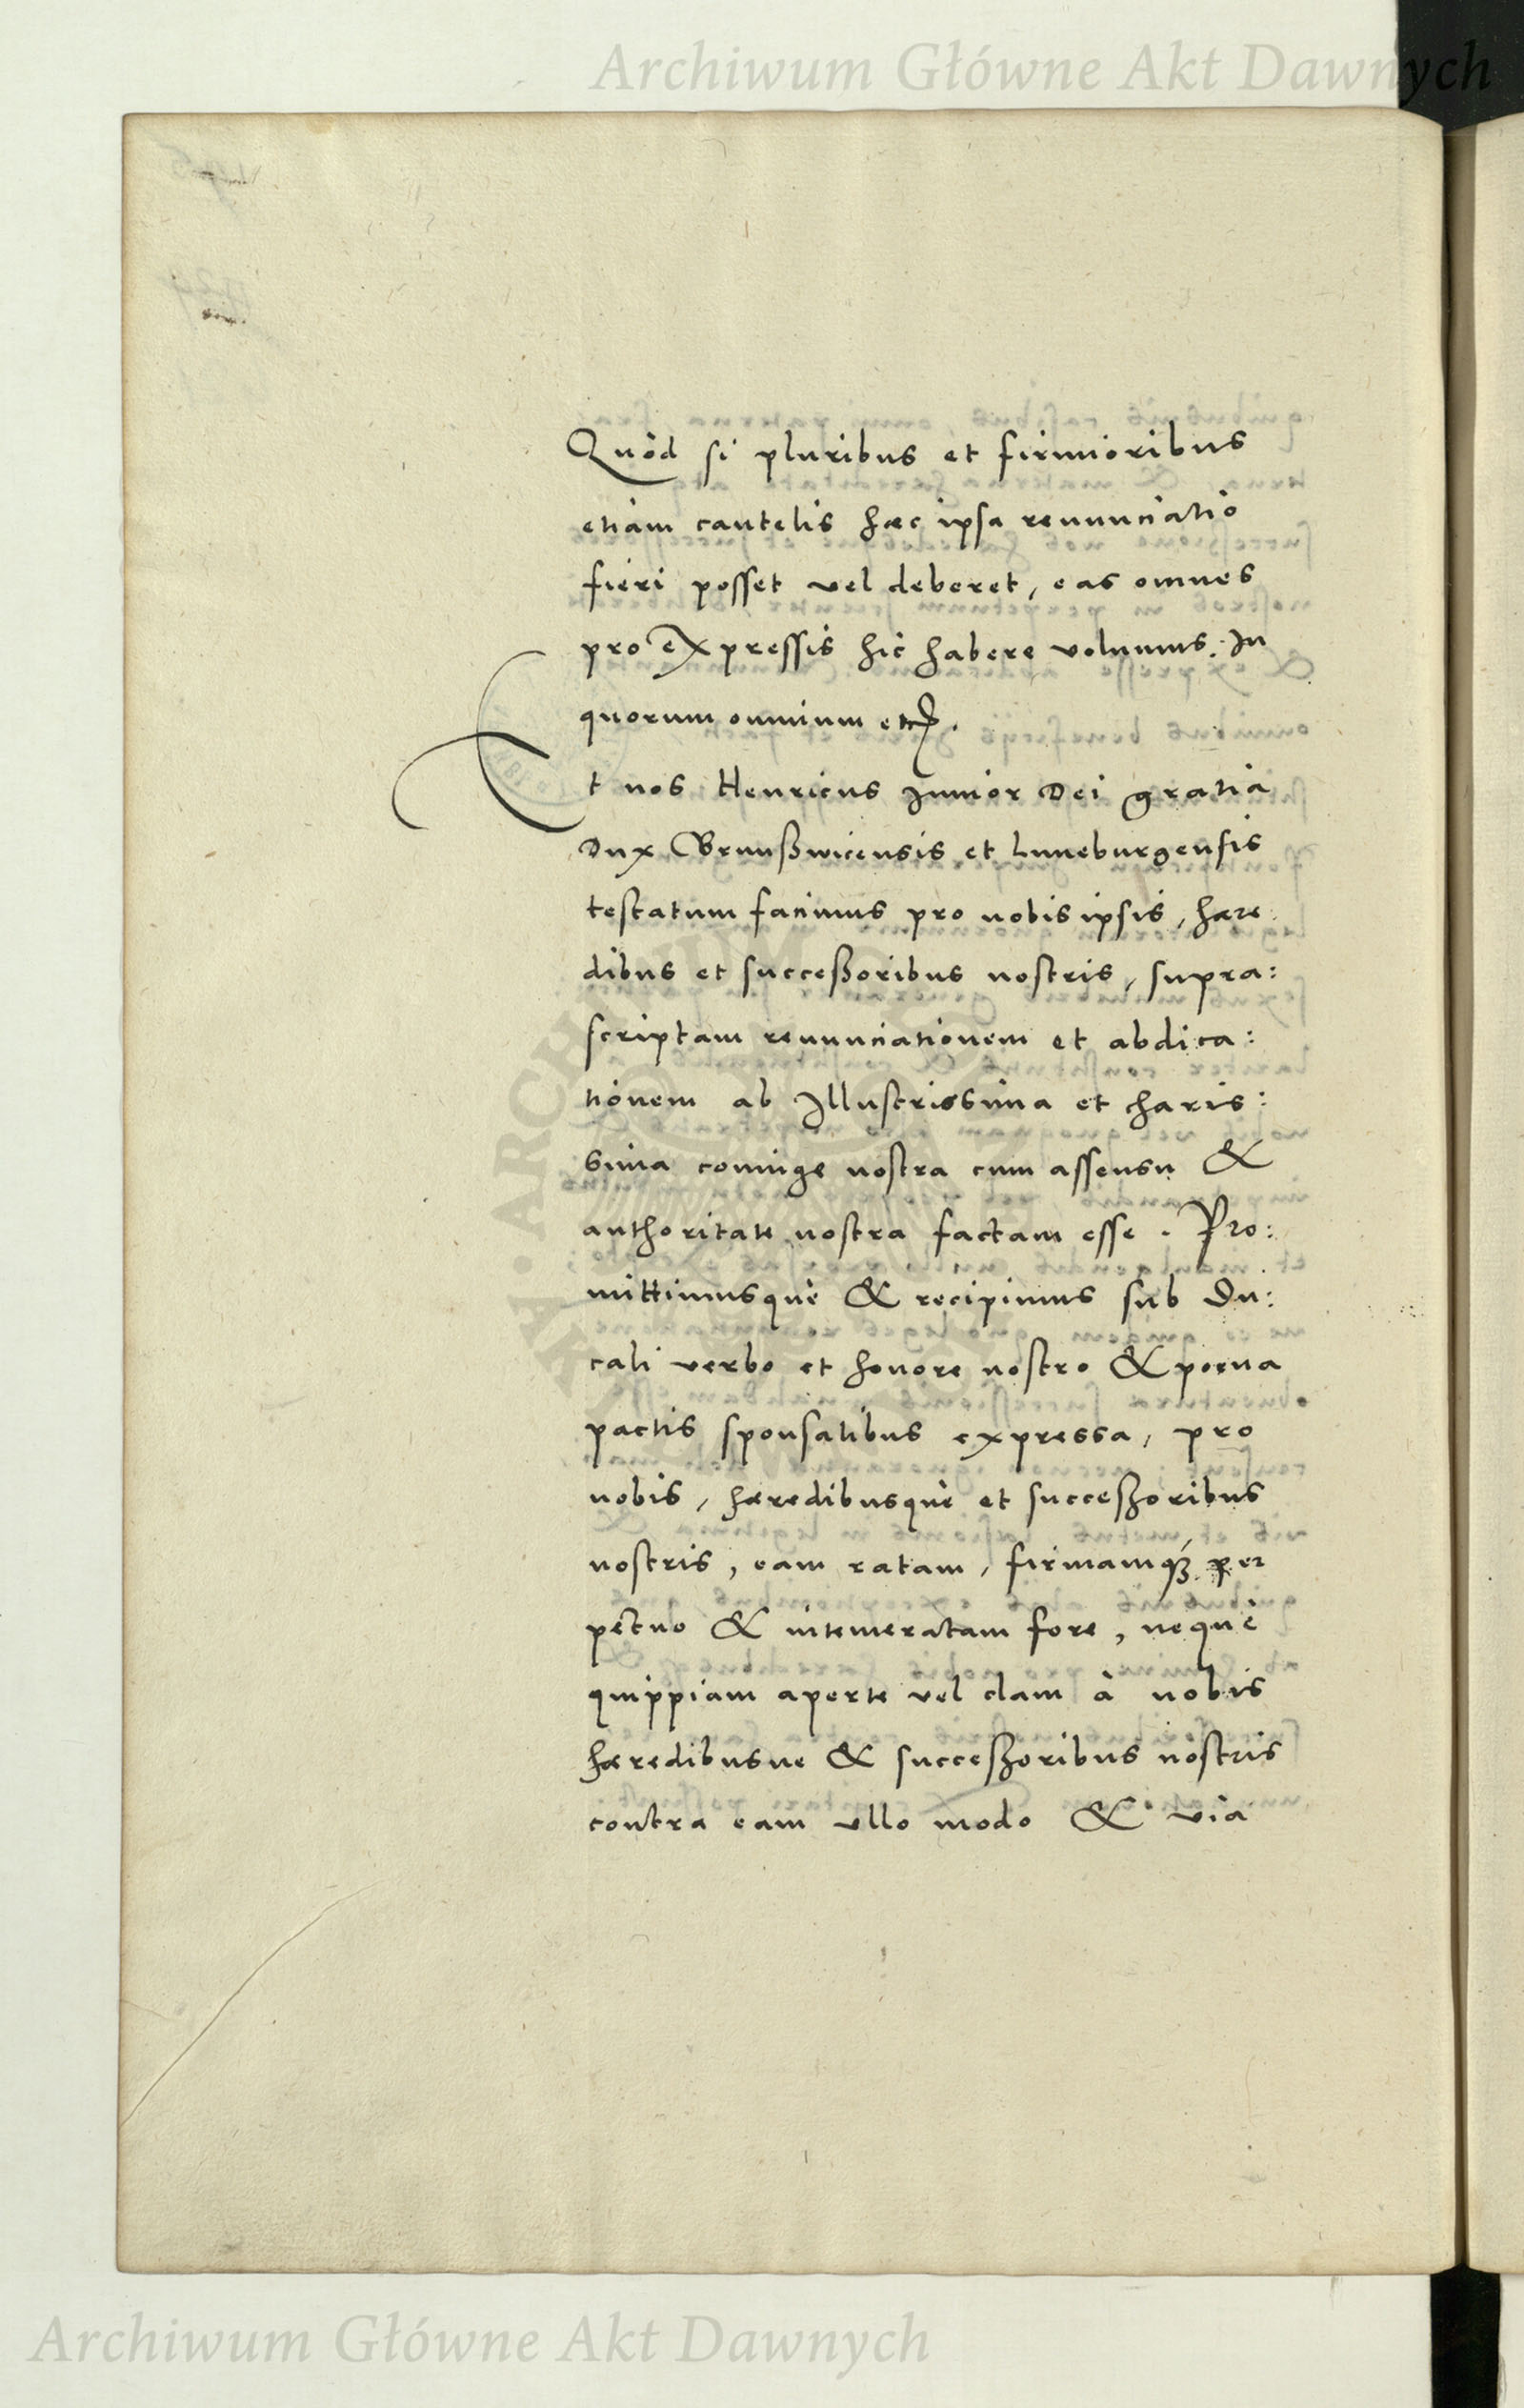 Archiwum Główne Akt Dawnych
Quòd si pluribus et firmioribus
etiam cautelis hæc ipsa renunciatio
fieri posset vel deberet, eas omnes
pro expressis hic habere volumus. In
quorum omnium etc.
Et nos Henricus Junior Dei gratia
Dux Brunßwicensis et Luneburgensis
testatum facimus pro nobis ipsis, hære
dibus et succeßoribus nostris, supra:
scriptam renunciationem et abdica:
tionem ab Illustrissima et charis:
sima coniuge nostra cum assensu &
authoritate nostra factam esse. Pro:
mittimusque & recipimus sub Du:
cali verbo et honore nostro & poena
pactis sponsalibus expressa, pro
nobis, hæredibusque et succeßoribus
nostris, eam ratam, firmamqꝫ per
petuo & intemeratam fore, neque
quippiam aperte vel clam à nobis
hæredibusve & succeßoribus nostris
contra eam ullo modo & via
Archiwum Główne Akt Dawnych